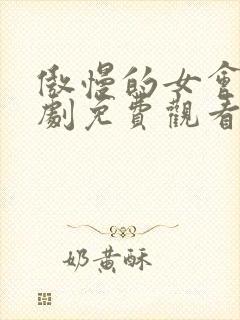 傲慢的女會
劇免費觀看
奶黃酥